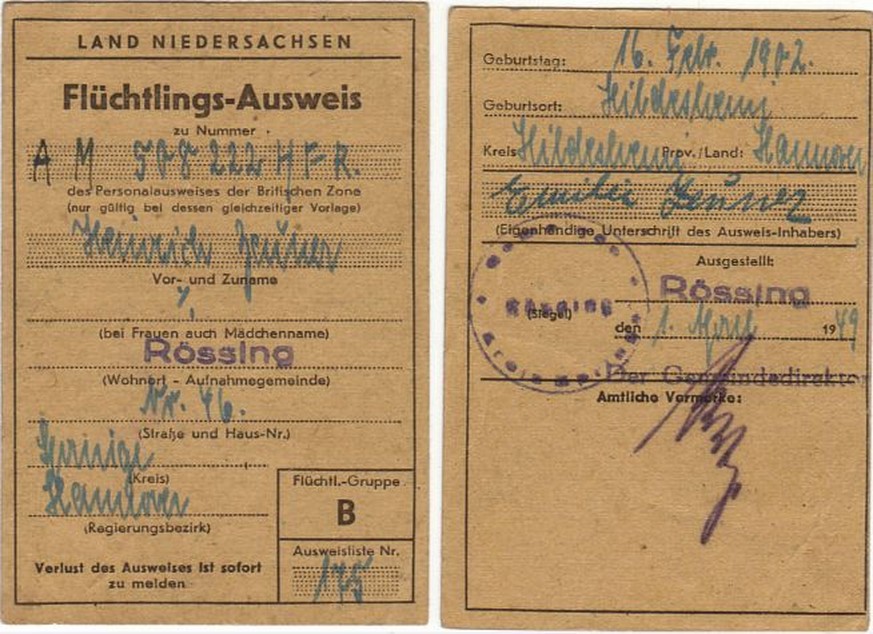 LAND NIEDERSACHSEN
Flüchtlings-Ausweis
zu Nummer
A M 508222 H F R.
des Personalausweises der Britischen Zone
(nur gültig bei dessen gleichzeitiger Vorlage)
Heinrich Zeuner
Vor- und Zuname
(bei Frauen auch Mädchenname)
Rössing
(Wohnort - Aufnahmegemeinde)
Nr. 46.
(Straße und Haus-Nr.)
(Kreis)
Hannover
(Regierungsbezirk)
Verlust des Ausweises ist sofort
zu melden
Flüchtl.-Gruppe
B
Ausweisliste Nr.
175
Geburtstag: 16. Febr. 1902.
Geburtsort: Hildesheim
Kreis Hildesheim Prov./Land: Hannover
Zeuner
(Eigenhändige Unterschrift des Ausweis-Inhabers)
Ausgestellt:
Rössing
(Siegel)
den 1. April 1949
Der Gemeindedirektor
Amtliche Vermerke: